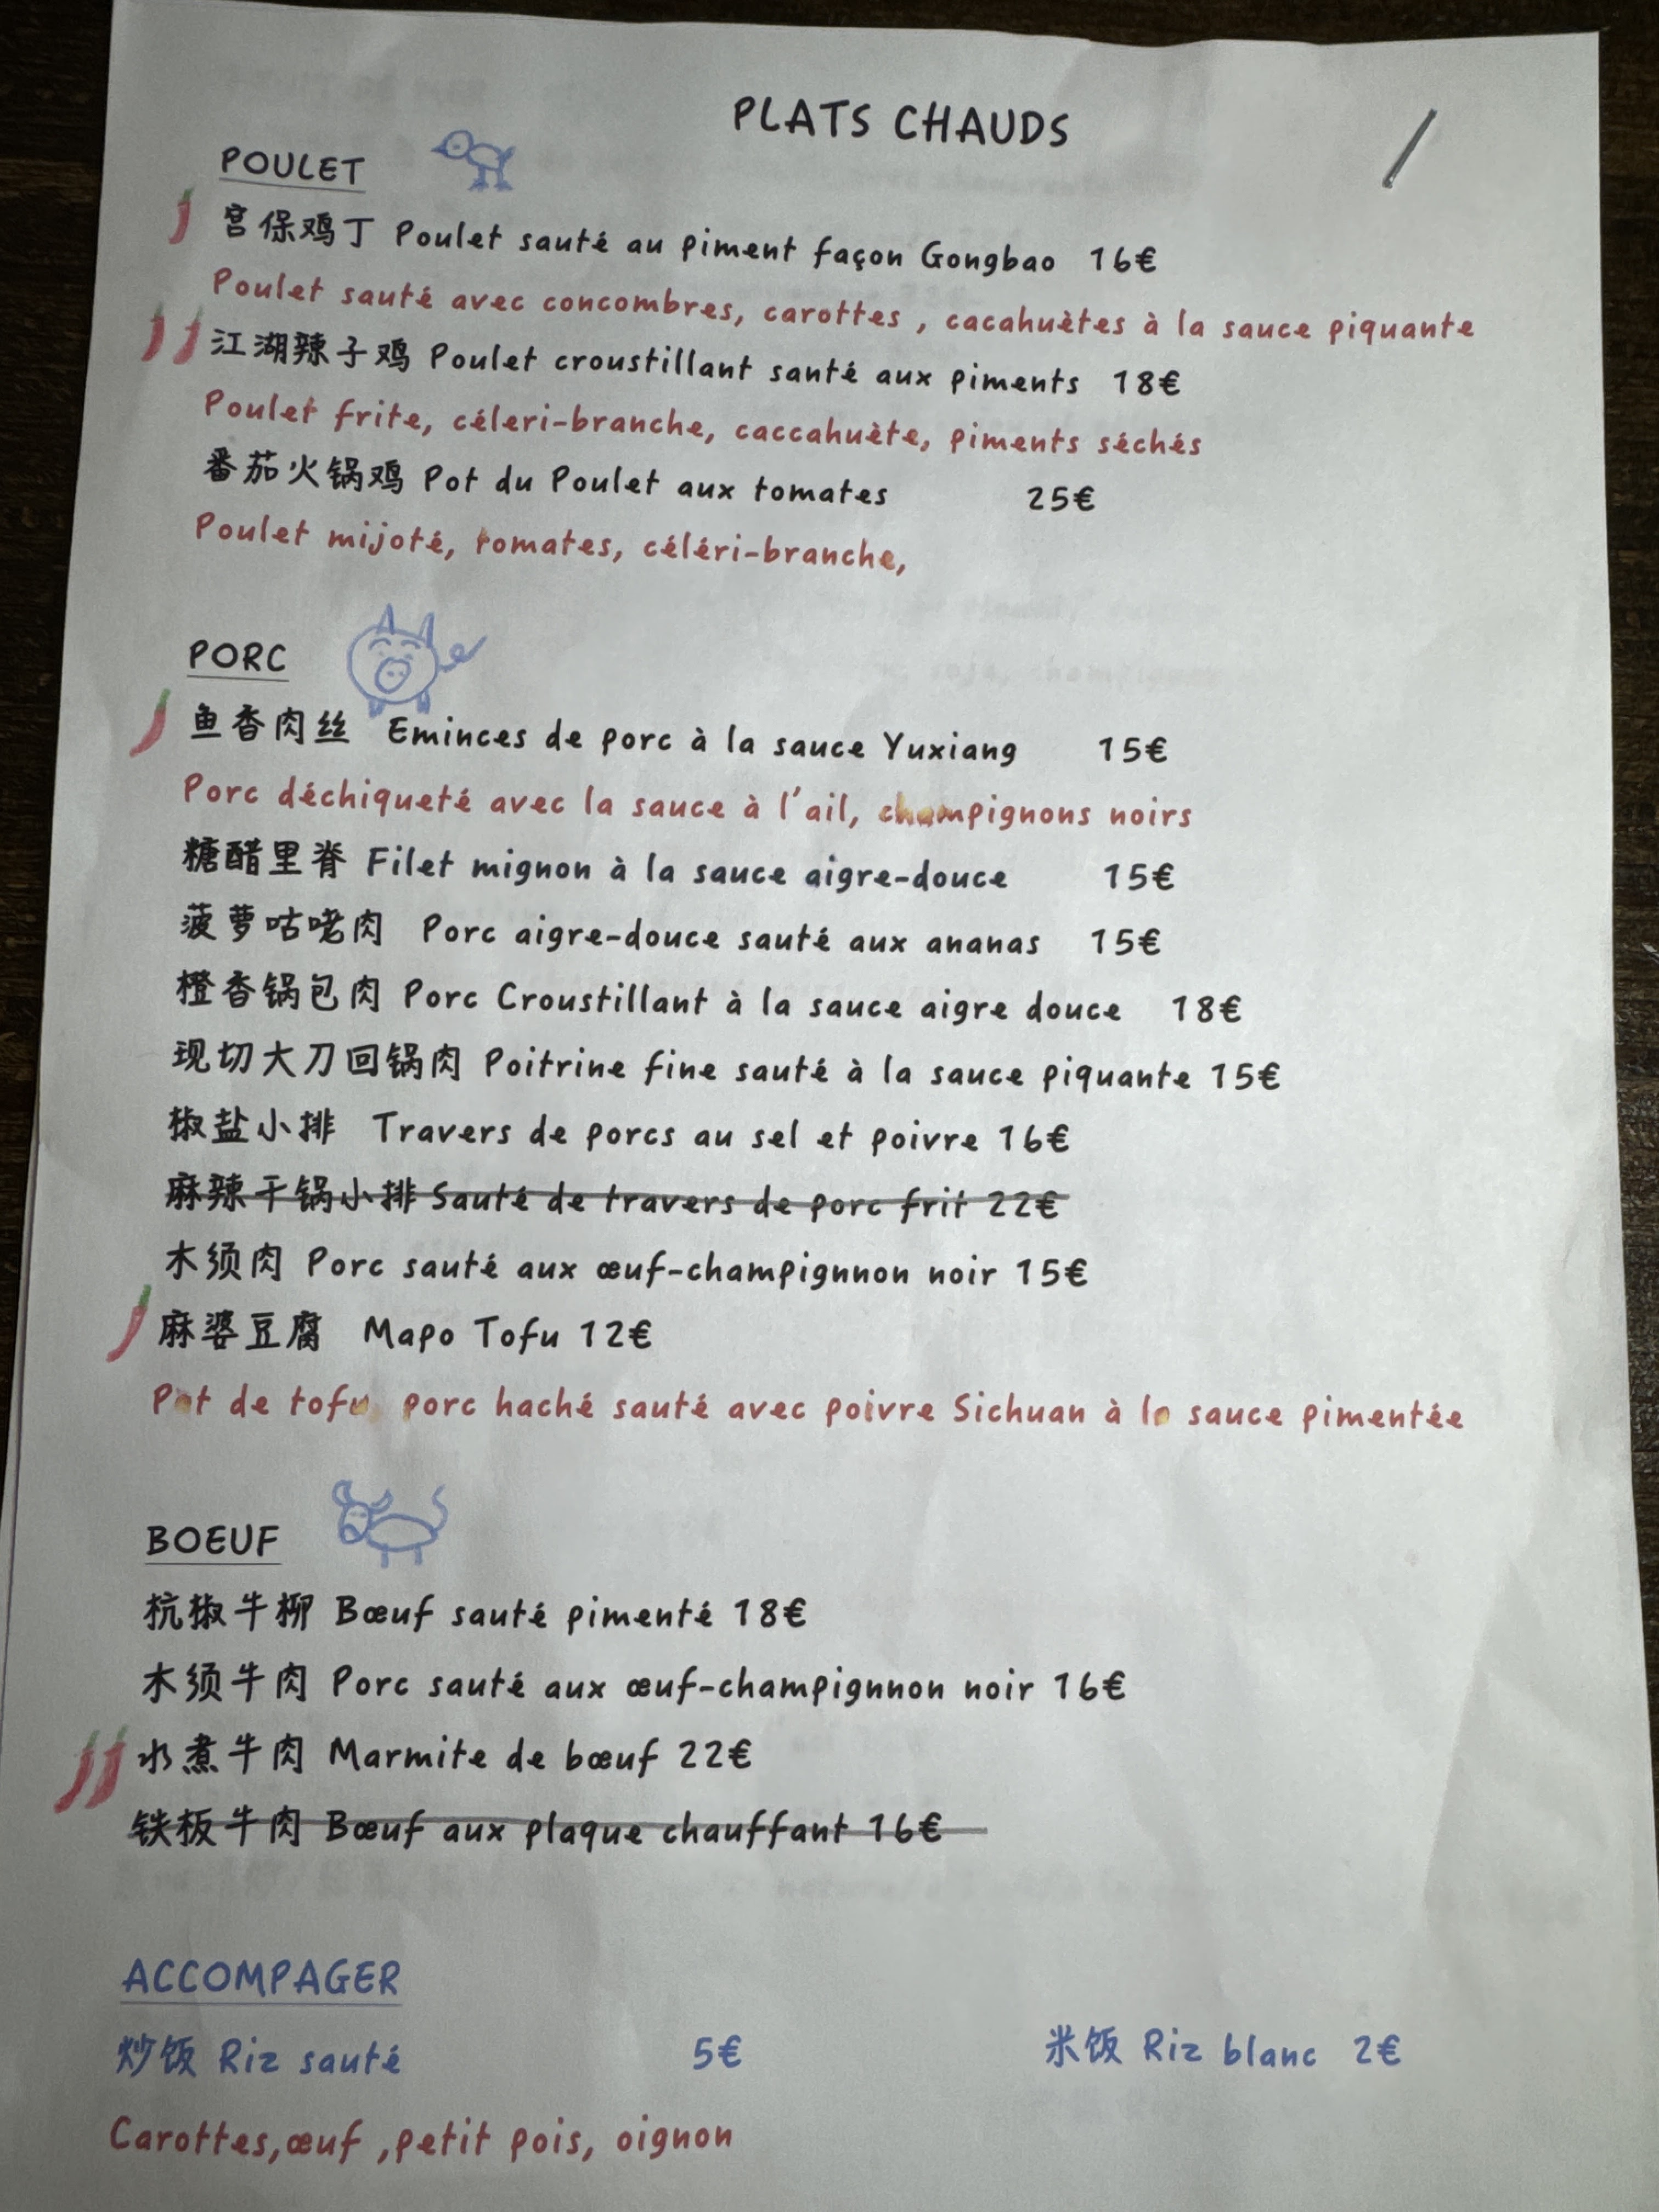 PLATS CHAUDS
POULET
宫保鸡丁 Poulet sauté au piment façon Gongbao 16€
Poulet sauté avec concombres, carottes , cacahuètes à la sauce piquante
江湖辣子鸡 Poulet croustillant santé aux piments 18€
Poulet frite, céleri-branche, caccahuète, piments séchés
番茄火锅鸡 Pot du Poulet aux tomates 25€
Poulet mijoté, tomates, céléri-branche,
PORC
鱼香肉丝 Eminces de porc à la sauce Yuxiang 15€
Porc déchiqueté avec la sauce à l'ail, champignons noirs
糖醋里脊 Filet mignon à la sauce aigre-douce 15€
菠萝咕咾肉 Porc aigre-douce sauté aux ananas 15€
橙香锅包肉 Porc Croustillant à la sauce aigre douce 18€
现切大刀回锅肉 Poitrine fine sauté à la sauce piquante 15€
椒盐小排 Travers de porcs au sel et poivre 16€
麻辣干锅小排 Sauté de travers de porc frit 22€
木须肉 Porc sauté aux œuf-champignnon noir 15€
麻婆豆腐 Mapo Tofu 12€
Pot de tofu, porc haché sauté avec poivre Sichuan à la sauce pimentée
BOEUF
杭椒牛柳 Bœuf sauté pimenté 18€
木须牛肉 Porc sauté aux œuf-champignnon noir 16€
水煮牛肉 Marmite de bœuf 22€
铁板牛肉 Bœuf aux plaque chauffant 16€
ACCOMPAGER
炒饭 Riz sauté 5€
米饭 Riz blanc 2€
Carottes,œuf ,petit pois, oignon